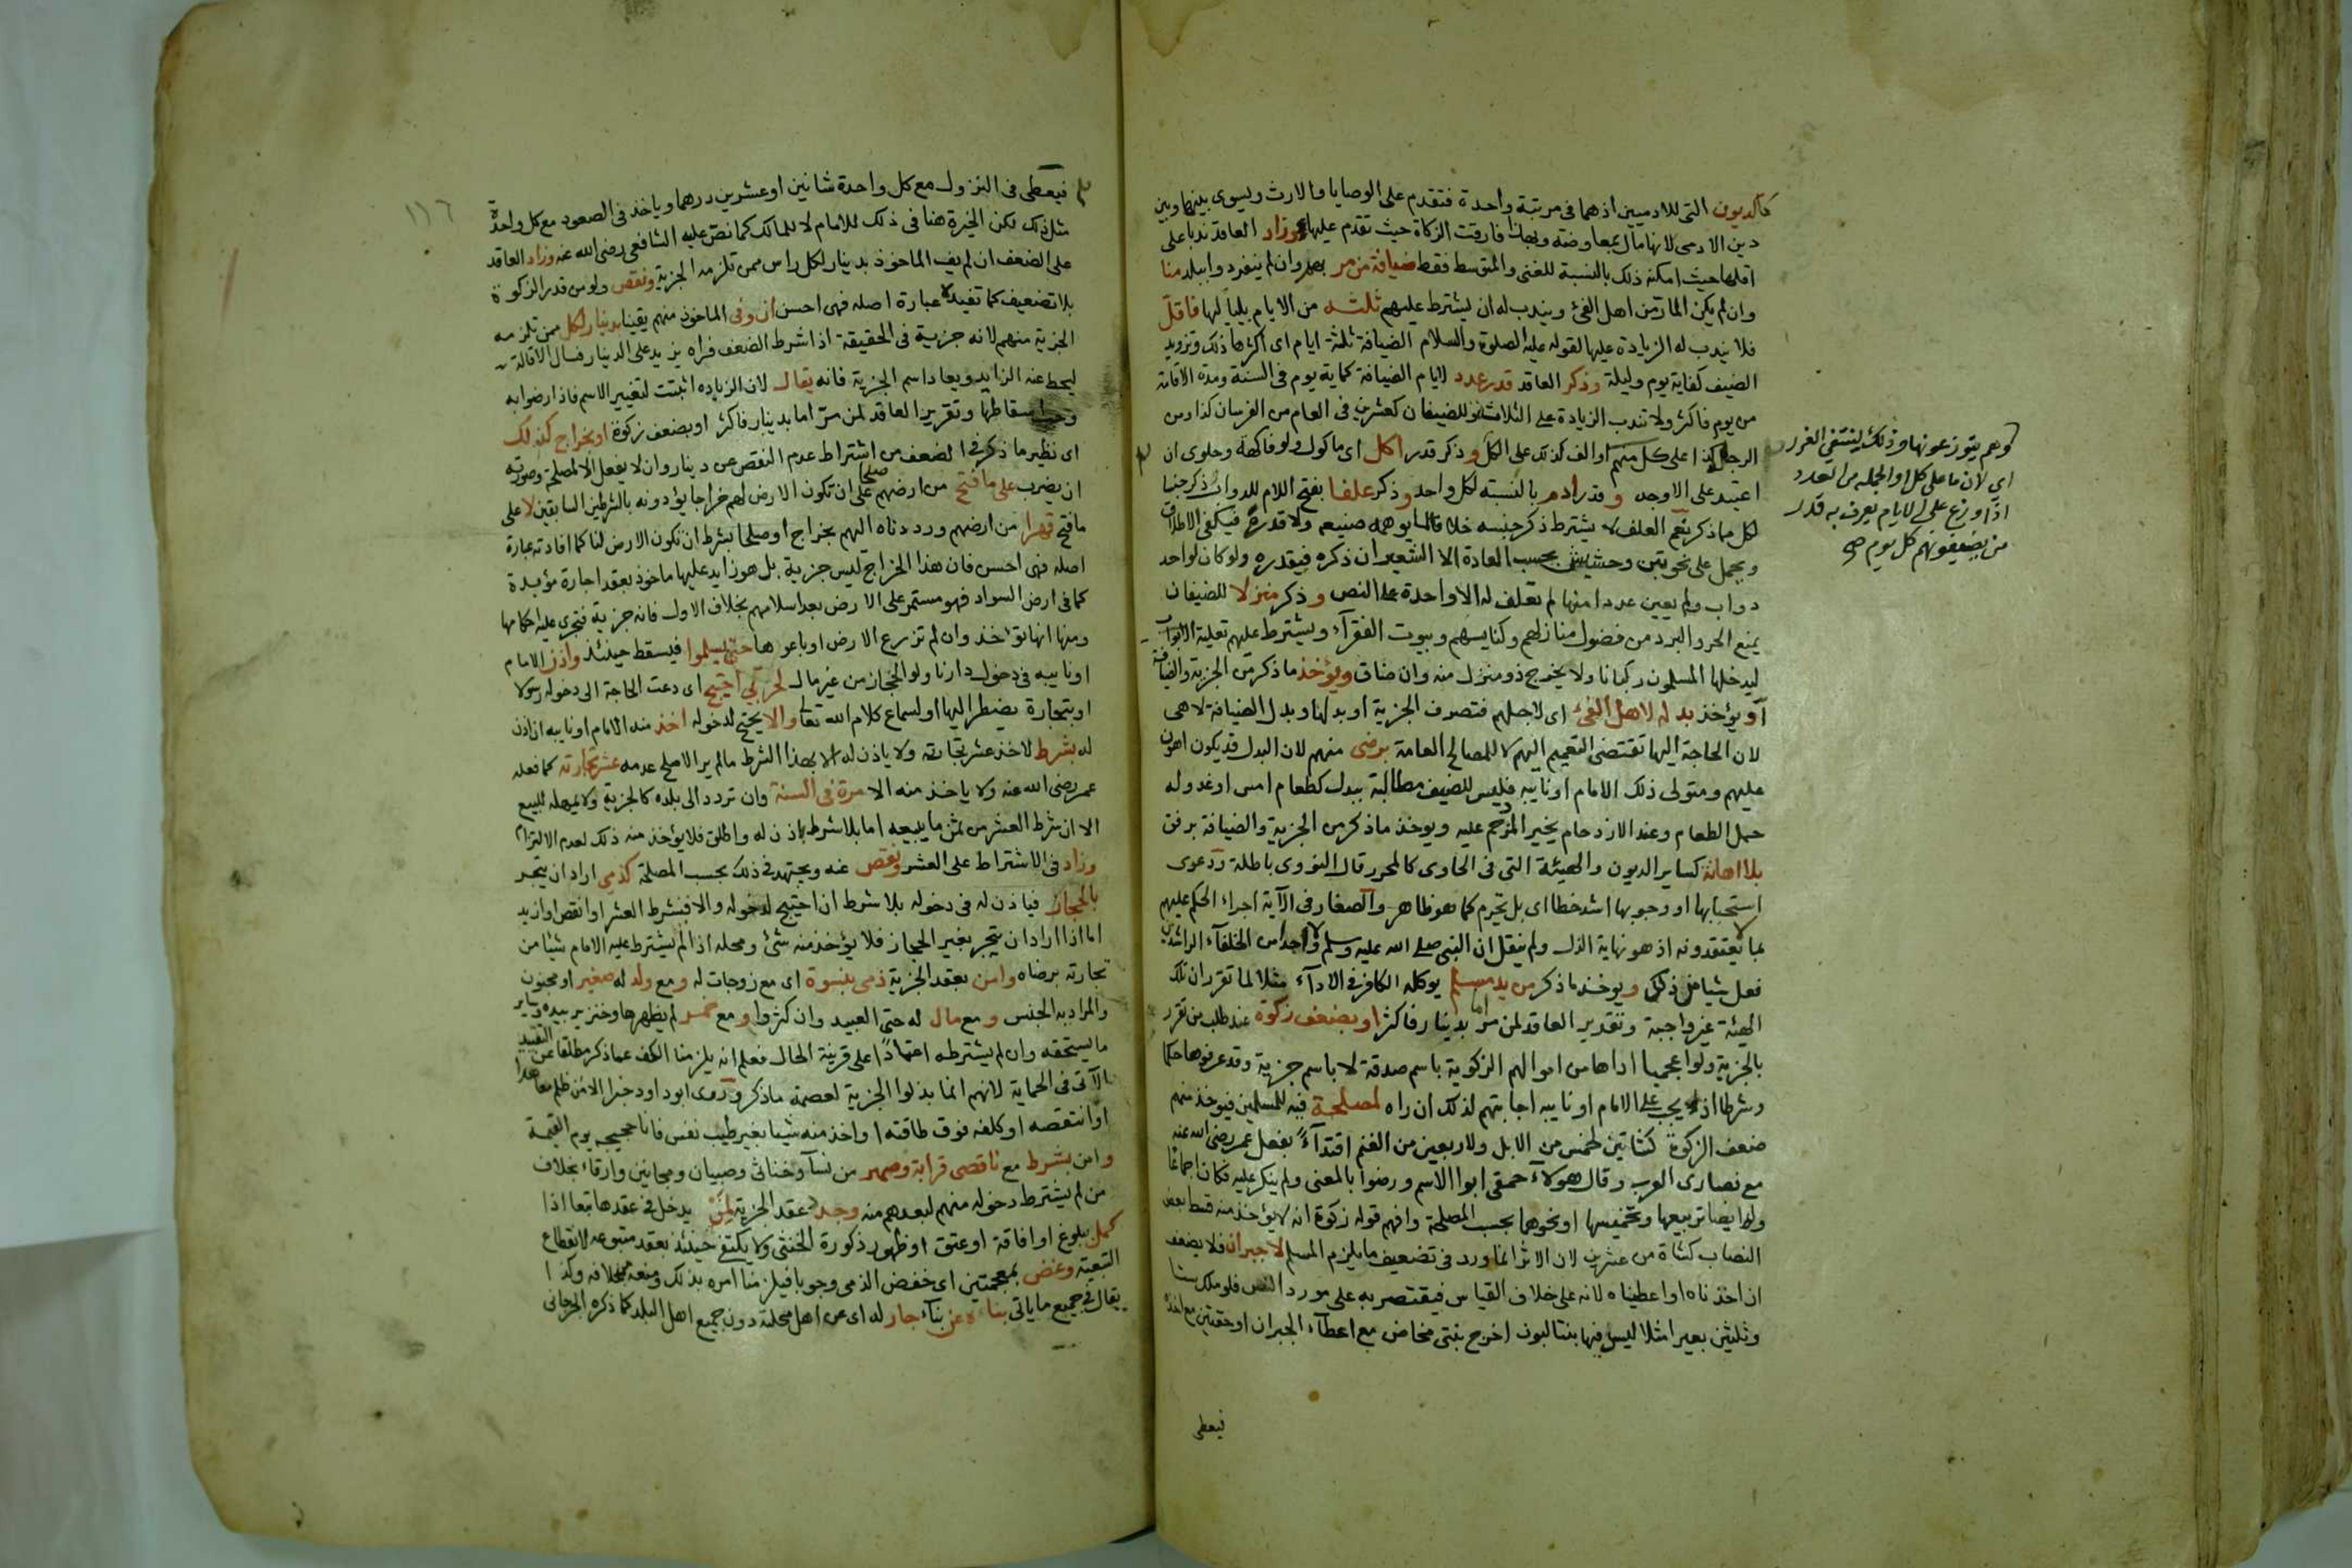 كالديون التي للادميين اذ هما في مرتبة واحدة فتقدم على الوصايا والارث ويسوى بينها وبين
دين الادمي لانها مال بمعاوضة وبهذا فارقت الزكاة حيث تقدم عليها وزاد العاقد ندبا على
اقلها حيث امكنه ذلك بالنسبة للغني والمتوسط فقط ضيافة من مر بهم وان لم ينفردوا ببلد منا
وان لم يكن المار من اهل الفئ ويندب له ان يشترط عليهم ثلثة من الايام بلياليها فاقل
فلا يندب له الزيادة عليها لقوله عليه الصلوة والسلام الضيافة ثلثة ايام اى اكثرها ذلك وتزويد
الضيف كفاية يوم وليلة وذكر العاقد قدر عدد لايام الضيافة كماية يوم في السنة ومدة الاقامة
من يوم فاكثر ولا تندب الزيادة على الثلاث وللضيفان كعشرين في العام من الفرسان كذا ومن
الرجالة كذا على كل منهم او الف كذلك على الكل وذكر قدر اكل اى ماكول ولو فاكهة وحلوى ان
اعتيد على الاوجه وقدر ادم بالنسبة لكل واحد وذكر علفا بفتح اللام للدواب ذكر جنسا
لكل مما ذكر نعم العلف لا يشترط ذكر جنسه خلافا لما يوهمه صنيعه ولا قدره فيكفي الاطلاق
ويحمل على نحو تبن وحشيش بحسب العادة الا الشعير ان ذكره فيقدره ولو كان لواحد
دواب ولم يعين عددا منها لم تعلف له الا واحدة على النص وذكر منزلا للضيفان
يمنع الحر والبرد من فضول منازلهم وكنايسهم وبيوت الفقرآء ويشترط عليهم تعلية الابواب
ليدخلها المسلمون ركبانا ولا يخرج ذو منزل منه وان ضاق ويؤخذ ما ذكر من الجزية والضيافة
او يؤخذ بدله لاهل الفئ اى لاجلهم فتصرف الجزية او بدلها وبدل الضيافة لا هي
لان الحاجة اليها تقتضي التعميم اليهم لا للمصالح العامة برضى منهم لان البدل قد يكون اهون
عليهم ومتولى ذلك الامام او نايبه فليس للضيف مطالبة ببدل كطعام امس او غد وله
حمل الطعام وعند الازدحام يخير المزدحم عليه ويوخذ ما ذكر من الجزية والضيافة برفق
بلا اهانة كساير الديون والهيئة التي في الحاوى كالمحرر قال النووى باطلة ودعوى
استحبابها او وجوبها اشد خطا اى بل تحرم كما هو ظاهر والصغار في الآية اجراء الحكم عليهم
بما لا يعتقدونه اذ هو نهاية الذل ولم ينقل ان النبي صلى الله عليه وسلم ولا احدا من الخلفآء الراشدين
فعل شيا من ذلك ويوخذ ما ذكر من يد مسلم يوكله الكافر في الادآء مثلا لما تقرر ان تلك
الهيئة غير واجبة وتقدير العاقد لمن مر اما بدينار فاكثر او بضعف زكوة عند طلب من تقرر
بالجزية ولو اعجميا اداها من اموالهم الزكوية باسم صدقة لا باسم جزية وقد عرفوها حكما
وشرطا اذ يجب على الامام او نايبه اجابتهم لذلك ان راه لمصلحة فيه للمسلمين فيوخذ منهم
ضعف الزكوة كشاتين لخمس من الابل ولاربعين من الغنم اقتدآء بفعل عمر رضي الله عنه
مع نصارى العرب وقال هولآء حمقى ابوا الاسم ورضوا بالمعنى ولم ينكر عليه فكان اجماعا
وله ايضا تربيعها وتخميسها او نحوهما بحسب المصلحة وافهم قوله زكوة انه لا يؤخذ منه قسط بعض
النصاب كشاة من عشرين لان الاثر انما ورد في تضعيف ما يلزم المسلم لا جبران فلا يضعف
ان اخذناه او اعطيناه لانه على خلاف القياس فيقتصر به على مورد النص فلو ملك ستا
وثلثين بعيرا مثلا ليس فيها بنتا لبون اخرج بنتي مخاض مع اعطآء الجبران او حقتين مع اخذه
فيعطى
وهم يتوزعونها وذلك لينتفي الغرر
اى لان ما على كل او الجملة من العدد
اذا وزع على الايام يعرف به قدر
من يضيفونهم كل يوم صح
١١٦
فيعطى في النزول مع كل واحدة شاتين او عشرين درهما وياخذ في الصعود مع كل واحدة
مثل ذلك لكن الخيرة هنا في ذلك للامام لا للمالك كما نص عليه الشافعي رضي الله عنه وزاد العاقد
على الضعف ان لم يف الماخوذ بدينار لكل راس ممن تلزمه الجزية ونقص ولو من قدر الزكوة
بلا تضعيف كما تفيده عبارة اصله فهي احسن ان وفى الماخوذ منهم يقينا بدينار لكل ممن تلزمه
الجزية منهم لانه جزية في الحقيقة اذا شرط الضعف فراه يزيد على الدينار فسال الاقالة
ليحط عنه الزايد ويعاد اسم الجزية فانه يقال لان الزياده اثبتت لتغيير الاسم فاذا رضوا به
وجب اسقاطها وتقرير العاقد لمن مر اما بدينار فاكثر او بضعف زكوة او بخراج كذلك
اى نظير ما ذكر في الضعف من اشتراط عدم النقص عن دينار وان لا يفعل الا لمصلحة وصورته
ان يضرب على ما فتح من ارضهم صلحا على ان تكون الارض لهم خراجا يؤدونه بالشرطين السابقين لا على
ما فتح قهرا من ارضهم ورددناه اليهم بخراج او صلحا بشرط ان تكون الارض لنا كما افادته عبارة
اصله فهي احسن فان هذا الخراج ليس جزية بل هو زايد عليها ماخوذ بعقد اجارة مؤبدة
كما في ارض السواد فهو مستمر على الارض بعد اسلامهم بخلاف الاول فانه جزية فتجرى عليه احكامها
ومنها انها تؤخذ وان لم تزرع الارض او باعوها حتى يسلموا فيسقط حينئذ واذن الامام
او نايبه في دخول دارنا ولو الحجاز من غير مال لحربي احتيج اى دعت الحاجة الى دخوله رسولا
او بتجارة يضطر اليها او لسماع كلام الله تعا والا يحتج لدخوله اخذ منه الامام او نايبه ان اذن
له بشرط لاخذ عشر تجارته ولا ياذن له الا بهذا الشرط ما لم ير الاصلح عدمه عشر تجارته كما فعله
عمر رضي الله عنه ولا ياخذ منه الا مرة في السنة وان تردد الى بلده كالجزية ولا يمهله للبيع
الا ان شرط العشر من ثمن ما يبيعه اما بلا شرط بان اذن له واطلق فلا يؤخذ منه ذلك لعدم الالتزام
وزاد في الاشتراط على العشر ونقص عنه ويجتهد في ذلك بحسب المصلحة كذمي اراد ان يتجر
بالحجاز فياذن له في دخوله بلا شرط ان احتيج لدخوله والا فبشرط العشر او انقص او ازيد
اما اذا اراد ان يتجر بغير الحجاز فلا يؤخذ منه شئ ومحله اذا لم يشترط عليه الامام شيئا من
تجارته برضاه وامن بعقد الجزية ذمي بنسوة اى مع زوجات له ومع ولد له صغير او مجنون
والمراد به الجنس ومع مال له حتى العبيد وان كثروا ومع خمر لم يظهرها وخنزير بيده وساير
ما يستحقه وان لم يشترطه اعتمادا على قرينة الحال فعلم انه يلزمنا الكف عما ذكر مطلقا عن التقييد
الآتي في الحماية لانهم انما بذلوا الجزية لعصمة ما ذكر وروى ابو داود خبر الا من ظلم معاهدا
او انتقصه او كلفه فوق طاقته او اخذ منه شيا بغير طيب نفس فانا حجيجه يوم القيمة
وامن بشرط مع ناقصي قرابة وصهر من نسآ وخناثى وصبيان ومجانين وارقاء بخلاف
من لم يشترط دخوله منهم لبعدهم منه وجدد عقد الجزية لمن يدخل في عقدها تبعا اذا
كمل ببلوغ او افاقة او عتق او ظهور ذكورة الخنثى ولا يكتفى حينئذ بعقد متبوعه لانقطاع
التبعية وغض بمعجمتين اى خفض الذمي وجوبا فيلزمنا امره بذلك ومنعه بخلافه وكذا
يقال في جميع ما ياتي بناءه عن بنآء جار له اى من اهل محلته دون جميع اهل البلد كما ذكره الجرجاني